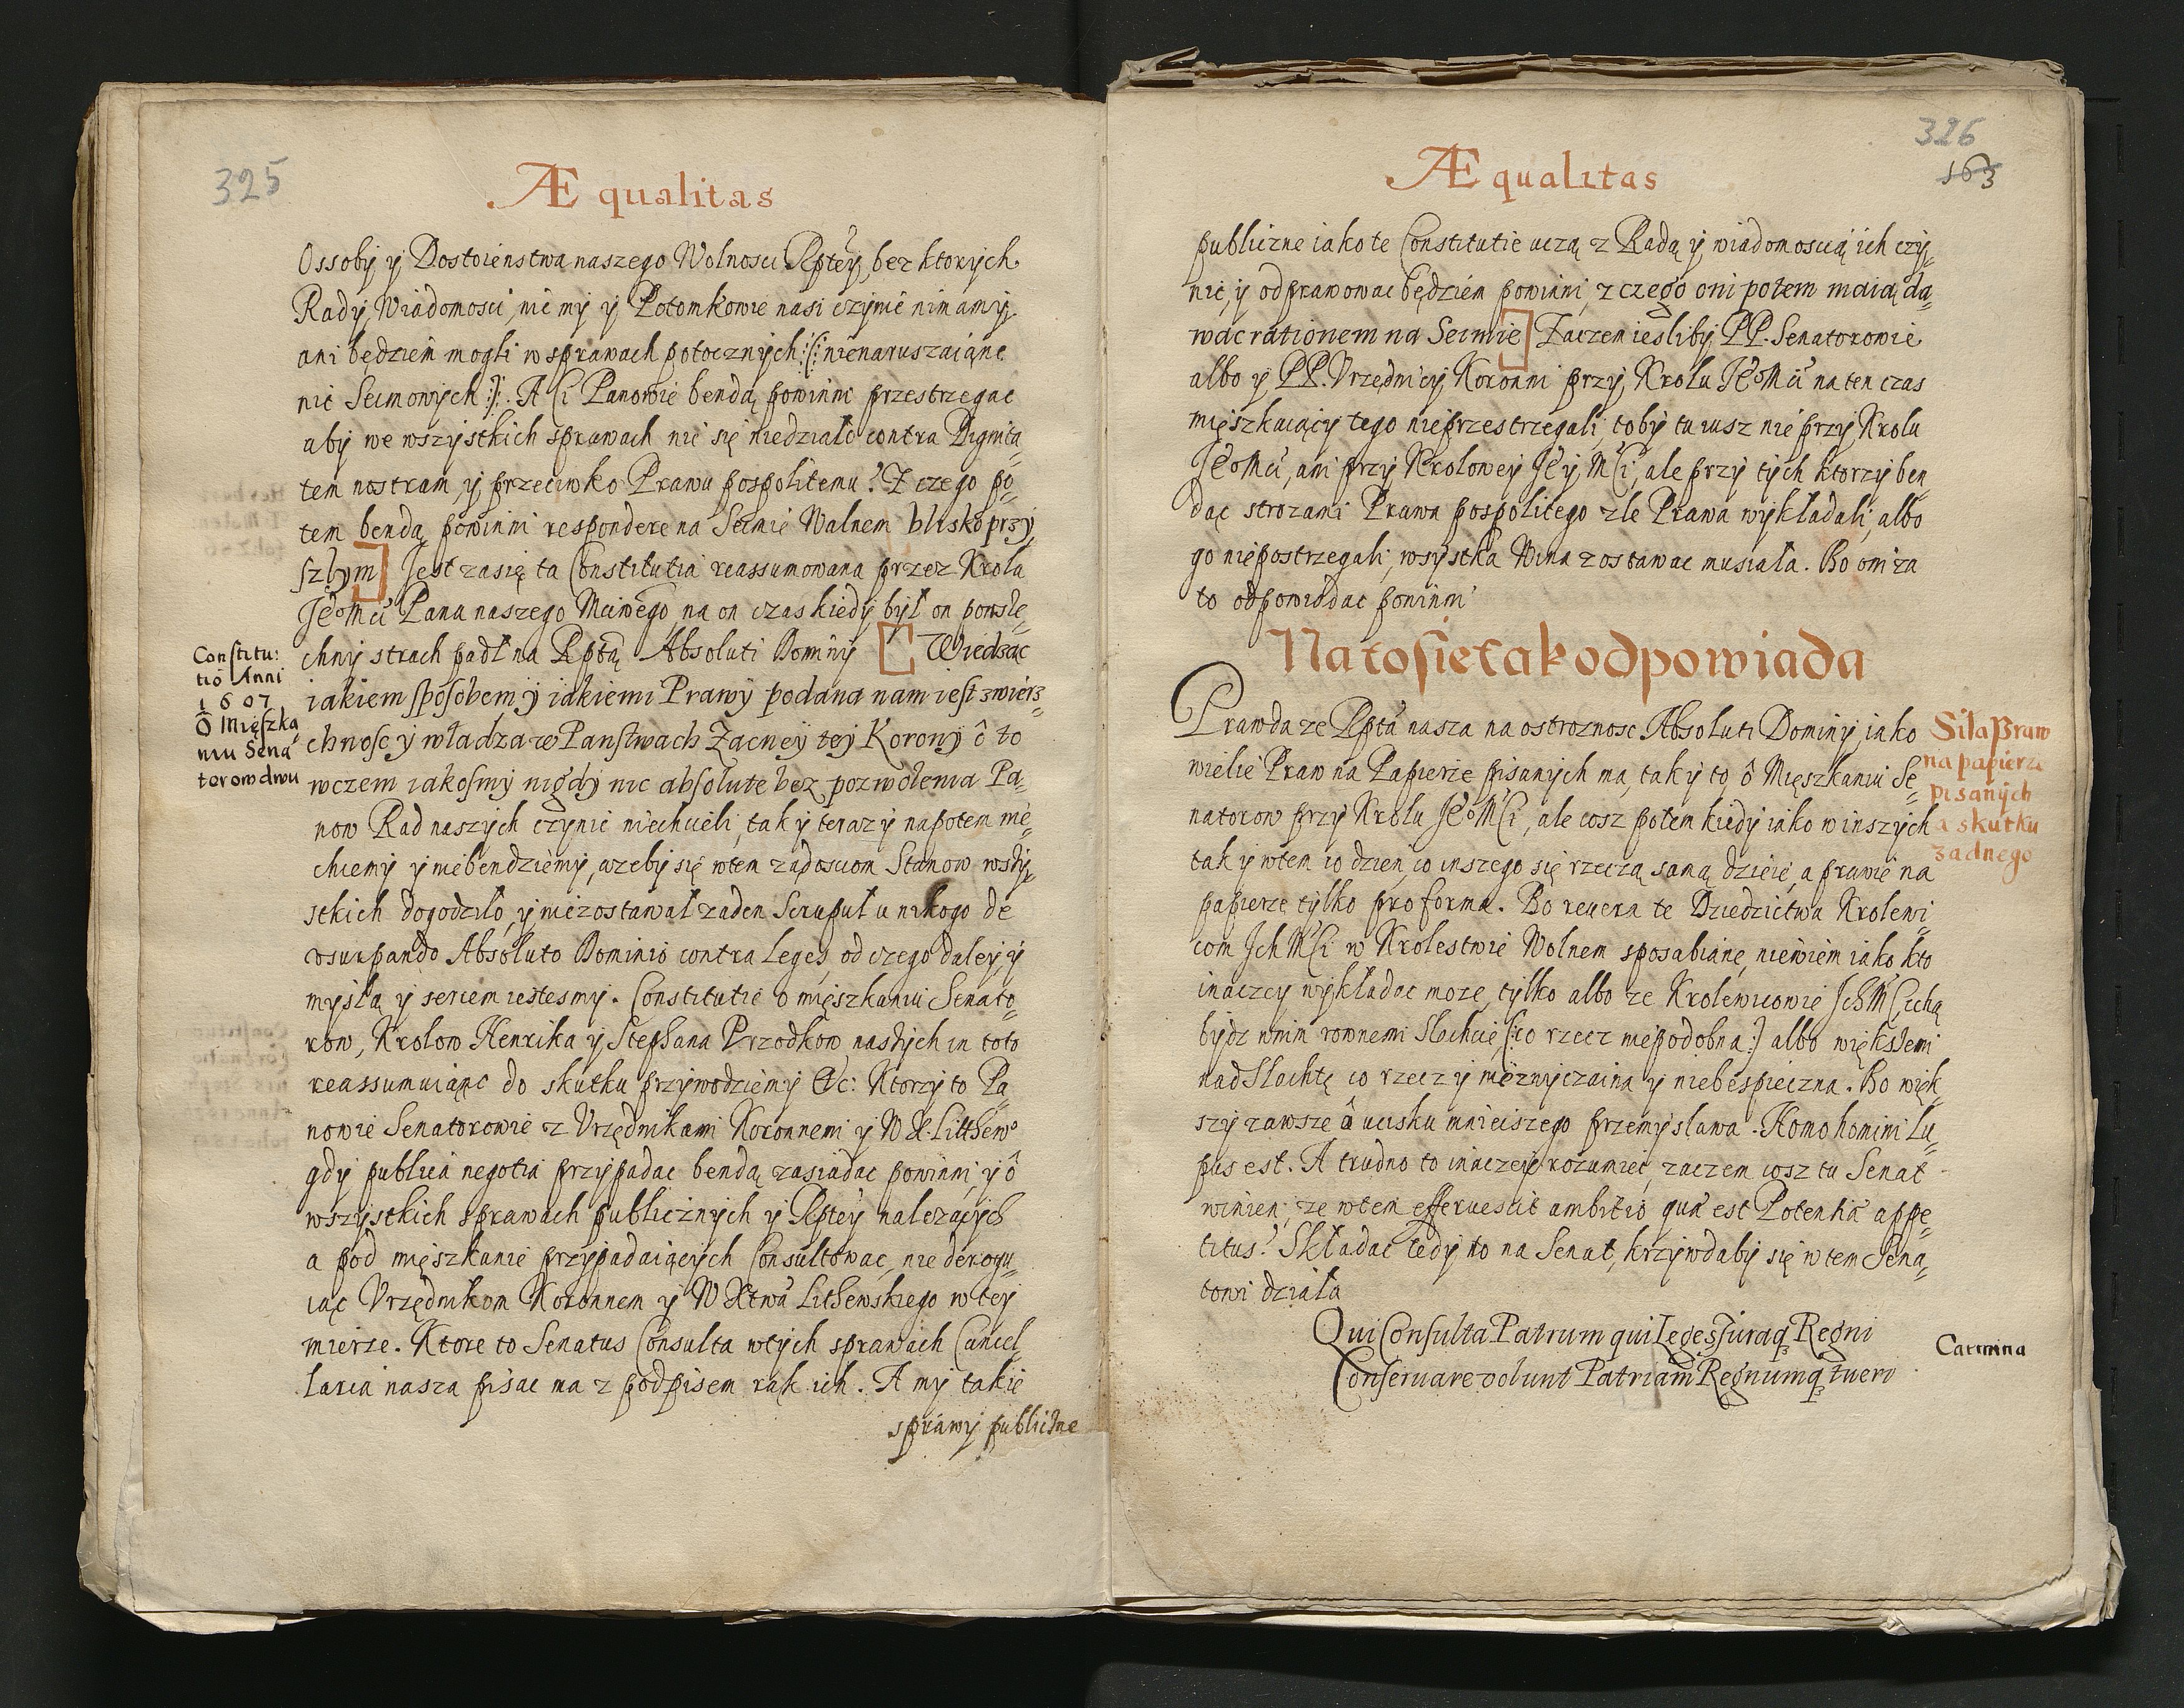 325
Æqualitas
Ossoby y Dostoienstwa naszego Wolnosci Rptey, bez ktorych
Rady, Wiadomosci, nie my y Potomkowie nasi czynic nimamy
ani będziem mogli w sprawach potocznych :(: nienaruszaiąnc
nic Seimowych :): A Ci Panowie bendą powinni przestrzegac
aby we wszystkich sprawach nic się niedziało contra Dignita„
tem nostram, y przeciwko Prawu pospolitemu? Z czego po„
tem bendą powinni respondere na Seimie Walnem blisko przy„
szłym] Jest zasię ta Constitutia reassumowana przez Krola
JeoMci Pana naszego Mciwego, na on czas kiedy był on powsłe„
chny strach padł na Rptą Absoluti Dominij [ Wiedząc
iakiem sposobem y iakiemi Prawy podana nam iest zwierz„
chnosc y władza w Panstwach Zacney tey Korony ô to
wczem iakosmy nigdy nic absolute bez pozwolenia Pa„
now Rad naszych czynic niechcieli, tak y teraz y napotem nie„
chcemy y niebendziemy, azeby się wtem zadosciom Stanow wszy„
stkich dogodziło, y niezostawał zaden Scrupuł u nikogo de
vsurpando Absoluto Dominio contra Leges, od czego daley y
myslą y sercem iestesmy. Constitutie o mięszkaniu Senato„
row, Krolow Henrika y Stephana Przodkow naszych in toto
reassumuiąnc do skutku przywodziemy &c: Ktorzy to Pa„
nowie Senatorowie z Vrzędnikami Koronnemi y W X. Litthewo
gdy publica negotia przypadac bendą zasiadac powinni, y ô
wszystkich sprawach publicznych y Rptey nalezących
a pod mięszkanie przypadaiących Consultowac, nie derogu„
iąc Vrzędnikom Koronnem y W Xtwa Lithewskiego w tey
mierze. Ktore to Senatus Consulta wtych sprawach Cancel„
laria nasza pisac ma z podpisem rąk ich. A my takie
sprawy publiczne
Constitu:
tio Anni
1607
O Mięszka
niu Sena
torow dwu
326
163
Æqualitas
publiczne iako te Constitutie uczą z Radą y wiadomoscią ich czy„
nic, y odprawowac będziem powinni, z czego oni potem maią da„
wac rationem na Seimie] Zaczem iesliby PP. Senatorowie
albo y PP. Vrzędnicy Koronni przy Krolu JeoMci na ten czas
mięszkaiący tego nieprzestrzegali, toby tu iusz nie przy Krolu
JeoMci, ani przy Krolowey Jey MCi, ale przy tych ktorzy ben
dąc strozami Prawa pospolitego zle Prawa wykładali, albo
go niepostrzegali, wsystka Wina zostawac musiała. Bo oni za
to odpowiadac powinni
Na to się tak odpowiada
Prawda ze Rpta nasza na ostroznosc Absoluti Dominij, iako
wielie Praw na Papierze pisanych ma, tak y to ô Mięszkaniu Se„
natorow przy Krolu JeoMCi, ale cosz potem kiedy iako winszych
tak y wtem co dzien, co inszego się rzeczą samą dzieie, a prawie na
papierze tylko pro forma. Bo reuera te Dziedzictwa Krolewi
com Jch MCi w Krolestwie Wolnem sposabiane, niewiem iako kto
inaczey wykładac moze, tylko albo ze Krolewicowie Jch MCi chcą
bydz wnim rownemi Slachcie, (:co rzecz niepodobna:) albo większemi
nad Slachtę co rzecz y niezwyczaina y niebespieczna. Bo więk„
szy zawsze ô ucisku mnieiszego przemysława. Homo homini Lu„
pus est. A trudno to inaczey rozumiec, zaczem cosz tu Senat
winien, ze wtem efferuescit ambitio, qua est Potentiæ appe„
titus? Składac tedy to na Senat, krzywdaby się w tem Sena„
towi działa
Qui Consulta Patrum qui Leges Juraq. Regni
Conseruare volunt Patriam Regnumq. tueri
Siła Praw
na papierze
pisanych
a skutku
zadnego
Carmina